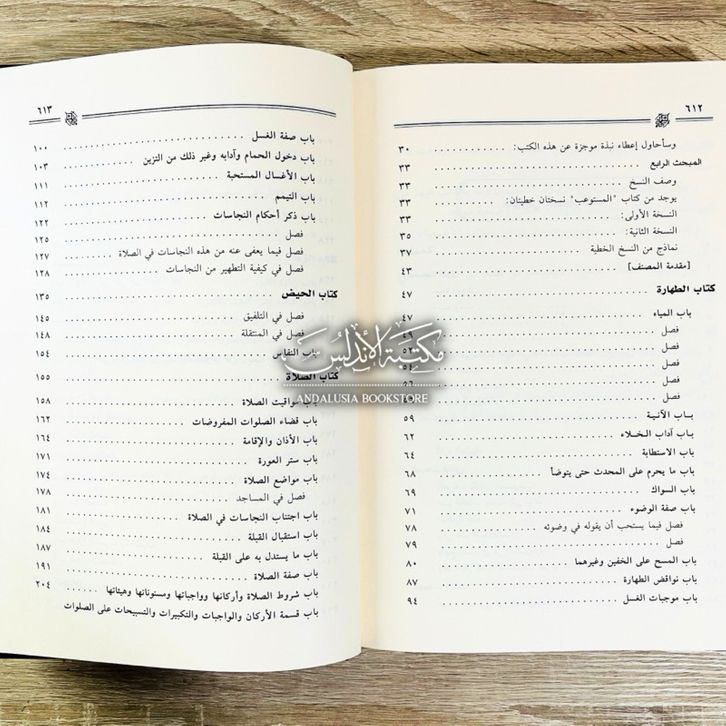 ٦١٢
وسأحاول إعطاء نبذة موجزة عن هذه الكتب: ٣٠
المبحث الرابع ٣٣
وصف النسخ ٣٣
يوجد من كتاب "المستوعب" نسختان خطيتان: ٣٣
النسخة الأولى: ٣٣
النسخة الثانية: ٣٥
نماذج من النسخ الخطية ٣٧
[مقدمة المصنف] ٤٣
كتاب الطهارة ٤٧
باب المياه ٤٧
فصل ٤٩
فصل ٥٢
فصل ٥٤
فصل ٥٦
فصل
بــاب الآنيـة ٥٩
بـاب آداب الخـلاء ٦٢
باب الاستطابة ٦٤
باب ما يحرم على المحدث حتى يتوضأ ٦٨
باب السواك ٦٩
باب صفة الوضوء ٧١
فصل فيما يستحب أن يقوله في وضوئه ٧٨
فصل ٧٩
باب المسح على الخفين وغيرهما ٨٠
باب نواقض الطهارة ٨٧
باب موجبات الغسل ٩٤
٦١٣
باب صفة الغسل ١٠٠
باب دخول الحمام وآدابه وغير ذلك من التزين ١٠٣
باب الأغسال المستحبة ١١١
باب التيمم ١١٢
باب ذكر أحكام النجاسات ١٢٢
فصل ١٢٥
فصل فيما يعفى عنه من هذه النجاسات في الصلاة ١٢٧
فصل في كيفية التطهير من النجاسات ١٢٨
كتاب الحيض ١٣٥
فصل في التلفيق ١٤٥
فصل في المنتقلة ١٤٨
باب النفاس ١٥٤
كتاب الصلاة ١٥٥
باب مواقيت الصلاة ١٥٨
باب قضاء الصلوات المفروضات ١٦٢
باب الأذان والإقامة ١٦٤
باب ستر العورة ١٧١
باب مواضع الصلاة ١٧٤
فصل في المساجد ١٧٨
باب اجتناب النجاسات في الصلاة ١٨١
باب استقبال القبلة ١٨٤
باب ما يستدل به على القبلة ١٨٧
باب صفة الصلاة ١٩١
باب شروط الصلاة وأركانها وواجباتها ومسنوناتها وهيئاتها ٢٠٤
باب قسمة الأركان والواجبات والتكبيرات والتسبيحات على الصلوات
مكتبة الأندلس
ANDALUSIA BOOKSTORE